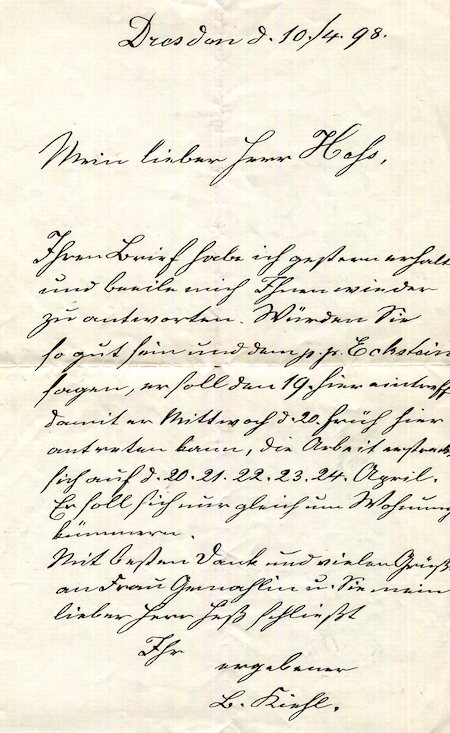 Dresden d. 10./4. 98.
Mein lieber Herr Hess,
Ihren Brief habe ich gestern erhalt
und beeile mich Ihnen wieder
zu antworten. Würden Sie
so gut sein und dem p.p. Eckstein
sagen, er soll den 19. hier eintreff
damit er Mittwoch d. 20. früh hier
antreten kann, die Arbeit erstreckt
sich auf d. 20. 21. 22. 23. 24. April.
Er soll sich nur gleich um Wohnung
kümmern.
Mit besten Dank und vielen Grüß
an Frau Gemahlin u. Sie mein
lieber Herr Heß schließt
Ihr
ergebener
B. Kiehl.